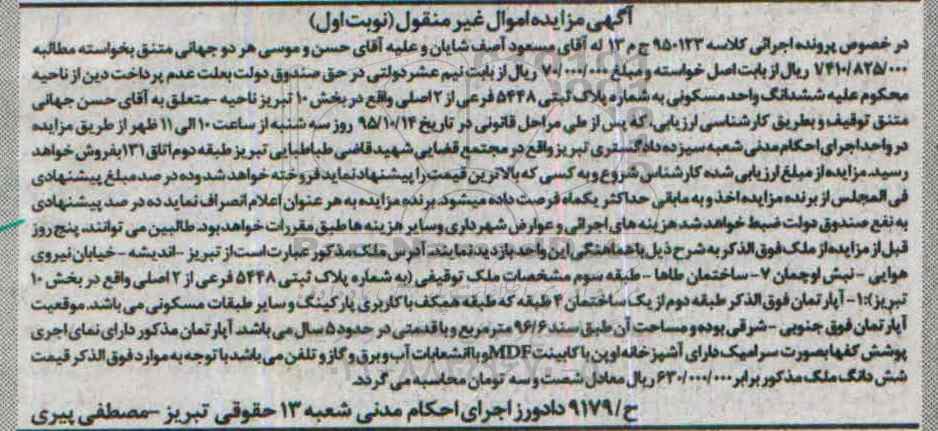 آگهی مزایده اموال غیر منقول (نوبت اول)
در خصوص پرونده اجرائی کلاسه ۹۵۰۱۲۳ ج م ۱۳ له آقای مسعود آصف شایان و علیه آقای حسن و موسی هر دو جهانی متنق بخواسته مطالبه
۷۴۱۰/۸۲۵/۰۰۰ ریال از بابت اصل خواسته و مبلغ ۷۰/۰۰۰/۰۰۰ ریال از بابت نیم عشر دولتی در حق صندوق دولت بعلت عدم پرداخت دین از ناحیه
محکوم علیه ششدانگ واحد مسکونی به شماره پلاک ثبتی ۵۴۴۸ فرعی از ۲ اصلی واقع در بخش ۱۰ تبریز ناحیه - متعلق به آقای حسن جهانی
متنق توقیف و بطریق کارشناسی ارزیابی، که پس از طی مراحل قانونی در تاریخ ۹۵/۱۰/۱۴ روز سه شنبه از ساعت ۱۰ الی ۱۱ ظهر از طریق مزایده
در واحد اجرای احکام مدنی شعبه سیزده دادگستری تبریز واقع در مجتمع قضایی شهید قاضی طباطبایی تبریز طبقه دوم اتاق ۱۳۱ بفروش خواهد
رسید. مزایده از مبلغ ارزیابی شده کارشناس شروع و به کسی که بالاترین قیمت را پیشنهاد نماید فروخته خواهد شد و ده در صد مبلغ پیشنهادی
فی المجلس از برنده مزایده اخذ و به مابقی حداکثر یکماه فرصت داده میشود. برنده مزایده به هر عنوان اعلام انصراف نماید ده در صد پیشنهادی
به نفع صندوق دولت ضبط خواهد شد هزینه های اجرائی و عوارض شهرداری و سایر هزینه ها طبق مقررات خواهد بود. طالبین می توانند، پنج روز
قبل از مزایده از ملک فوق الذکر به شرح ذیل با هماهنگی این واحد بازدید نمایند. آدرس ملک مذکور عبارت است از تبریز - اندیشه - خیابان نیروی
هوایی - نبش لوچمان ۷ - ساختمان طاها - طبقه سوم مشخصات ملک توقیفی (به شماره پلاک ثبتی ۵۴۴۸ فرعی از ۲ اصلی واقع در بخش ۱۰
تبریز): ۱ - آپارتمان فوق الذکر طبقه دوم از یک ساختمان ۴ طبقه که طبقه همکف با کاربری پارکینگ و سایر طبقات مسکونی می باشد. موقعیت
آپارتمان فوق جنوبی - شرقی بوده و مساحت آن طبق سند ۹۶/۶ متر مربع و با قدمتی در حدود ۵ سال می باشد. آپارتمان مذکور دارای نمای اجری
پوشش کفها بصورت سرامیک دارای آشپزخانه اوپن با کابینت MDF و با انشعابات آب و برق و گاز و تلفن می باشد با توجه به موارد فوق الذکر قیمت
شش دانگ ملک مذکور برابر ۶۳۰/۰۰۰/۰۰۰ ریال معادل شصت و سه تومان محاسبه می گردد.
ح/۹۱۷۹ دادورز اجرای احکام مدنی شعبه ۱۳ حقوقی تبریز - مصطفی پیری